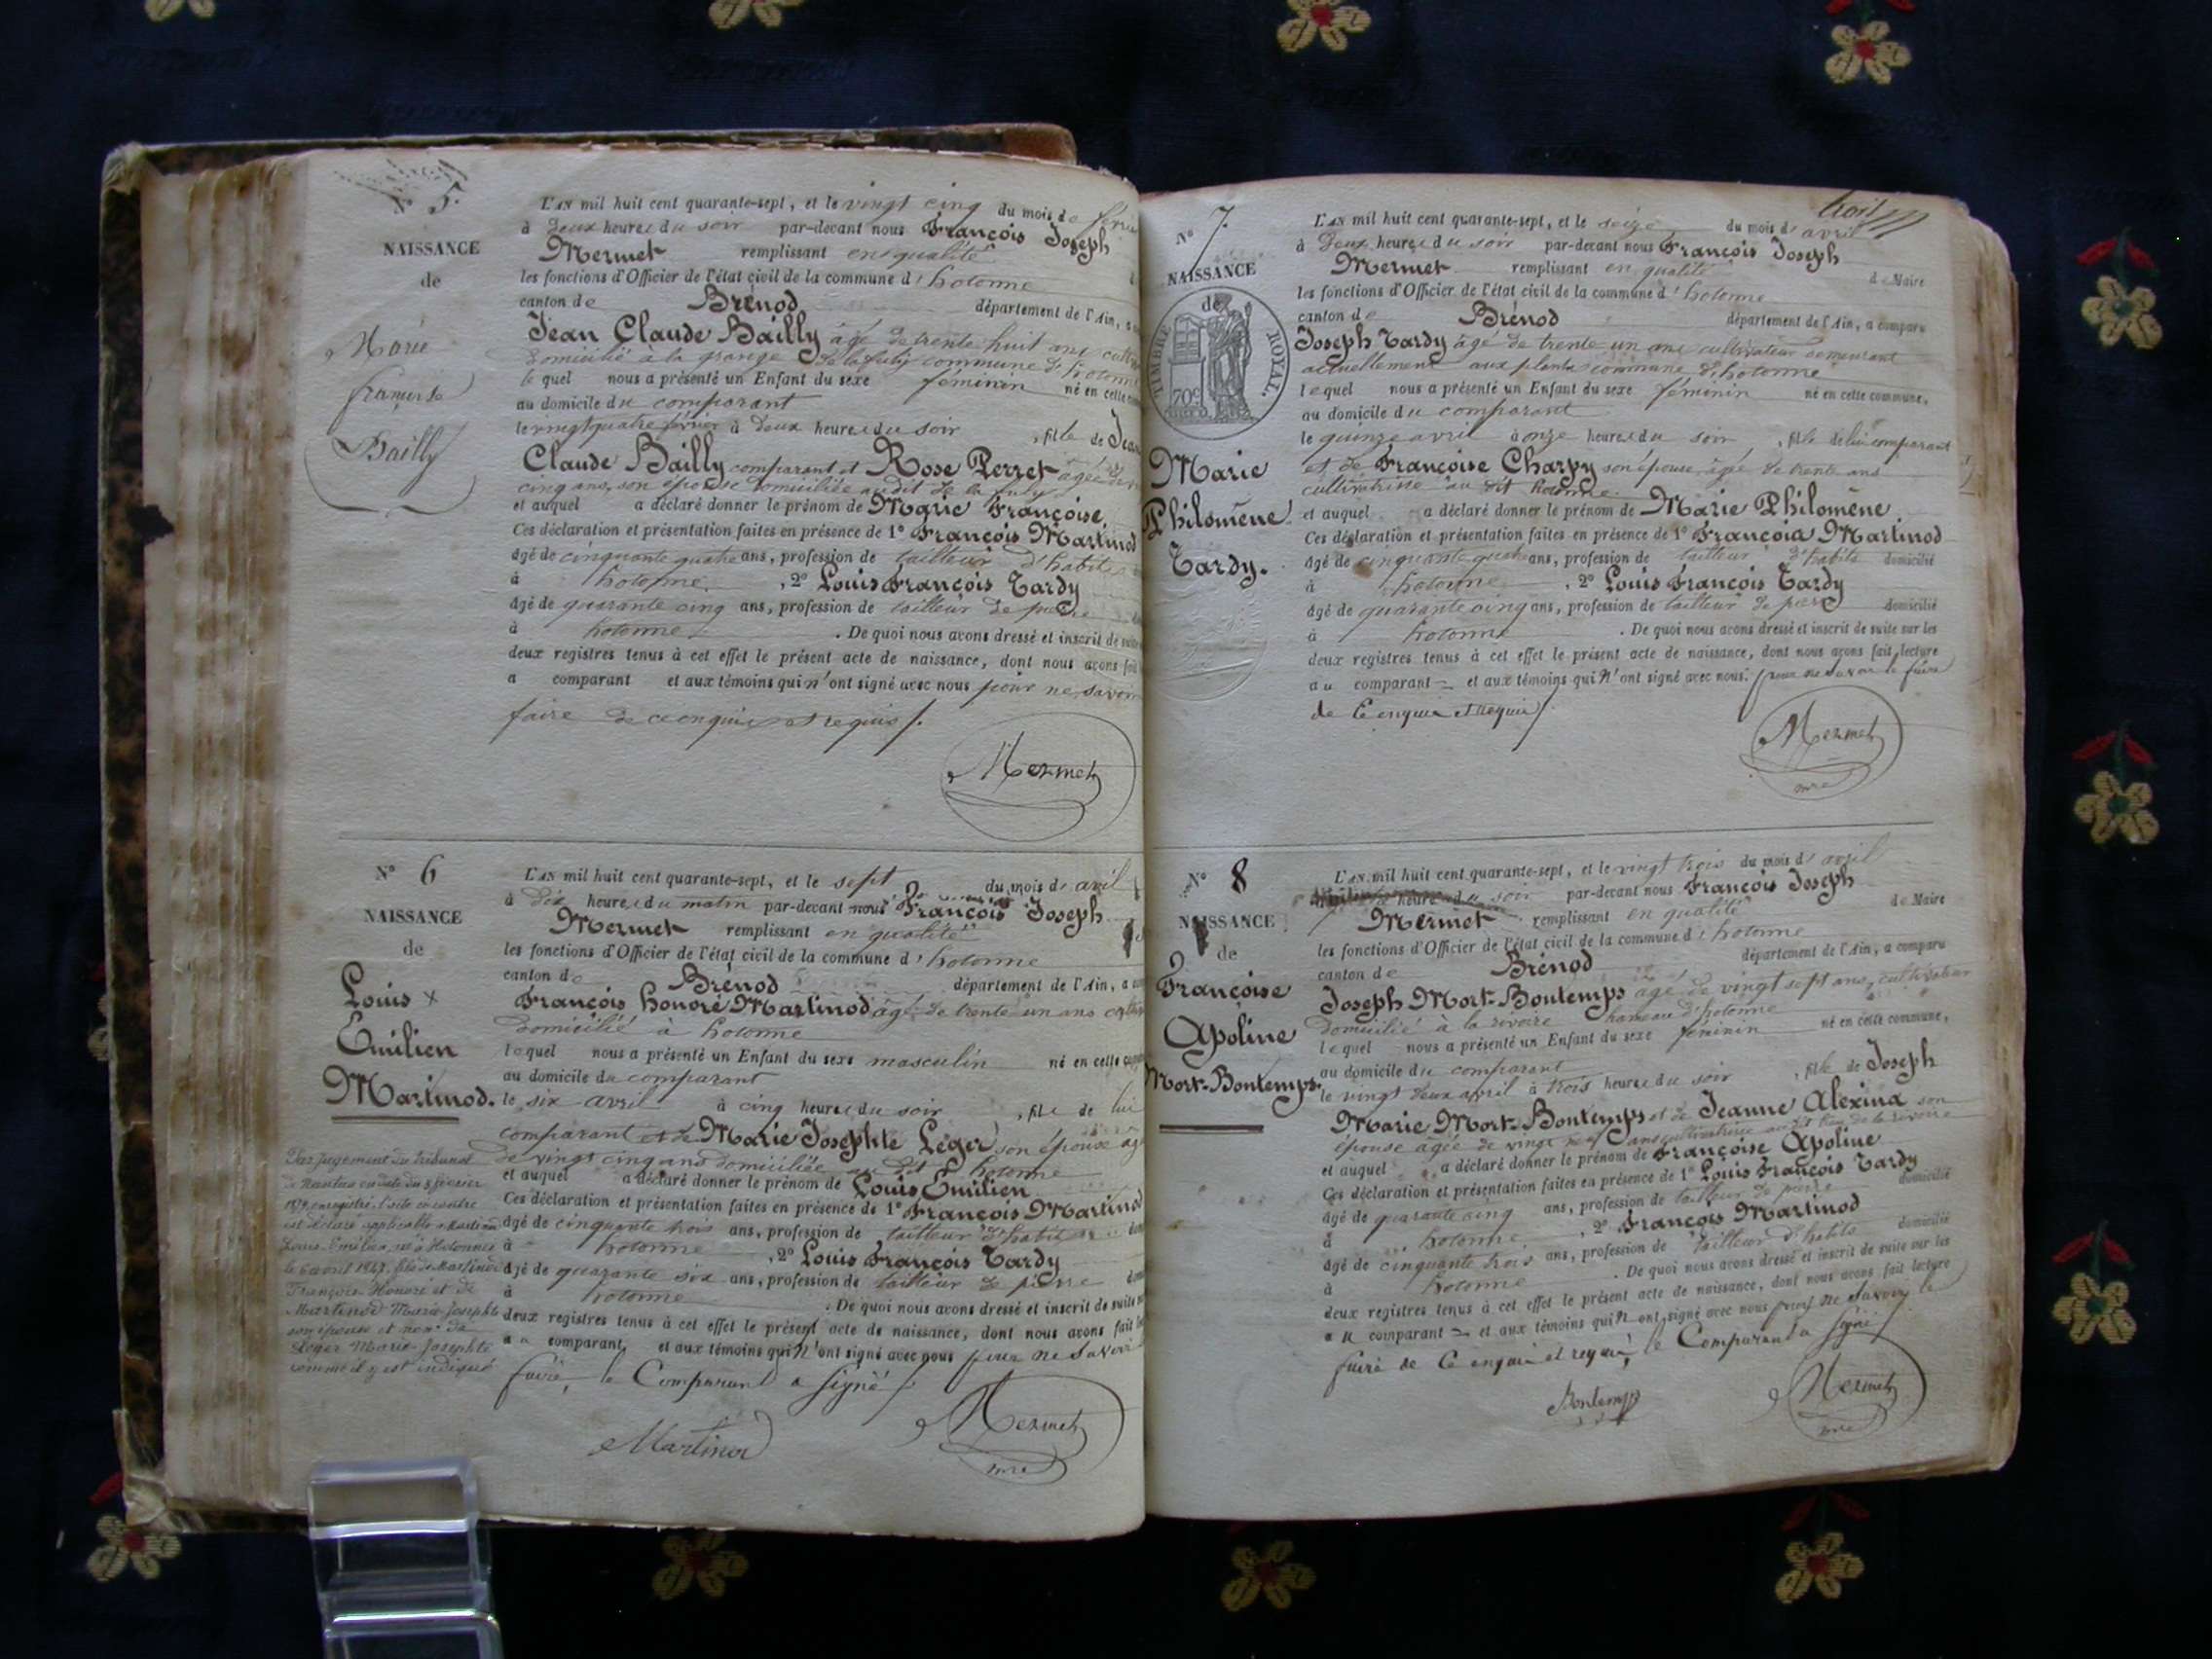 N° 5.
NAISSANCE
de
Marie
françoise
Bailly
L'AN mil huit cent quarante-sept, et le vingt cinq du mois de
à deux heures du soir par-devant nous François Joseph
Mermet remplissant en qualité
les fonctions d'Officier de l'état civil de la commune d'hotonne
canton de Brénod département de l'Ain, a
Jean Claude Bailly âgé de trente huit ans
domicilié à la grange commune d'hotonne
lequel nous a présenté un Enfant du sexe féminin né en cette
au domicile du comparant
le vingt quatre février à deux heures du soir , fille de Jean
Claude Bailly comparant et Rose Perret âgée de
cinq ans, son épouse domiciliée au dit
et auquel a déclaré donner le prénom de Marie Françoise.
Ces déclaration et présentation faites en présence de 1° François Martinod
âgé de cinquante quatre ans, profession de tailleur d'habits
à hotonne , 2° Louis François Tardy
âgé de quarante cinq ans, profession de tailleur de pierre
à hotonne . De quoi nous avons dressé et inscrit de suite
deux registres tenus à cet effet le présent acte de naissance, dont nous avons fait
a comparant et aux témoins qui n'ont signé avec nous pour ne savoir
faire de ce enquis et requis /.
Mermet
N° 6
NAISSANCE
de
Louis x
Émilien
Martinod.
Par jugement du tribunal
de Nantua en date du 8 février
1879, enregistré, l'acte ci-contre
est déclaré applicable à Martinod
Louis Émilien, né à Hotonnes
le 6 avril 1847, fils de Martinod
François Honoré et de
Martinod Marie Josephte
son épouse et non de
Léger Marie-Josephte
comme il y est indiqué
L'AN mil huit cent quarante-sept, et le sept du mois d'avril
à dix heures du matin par-devant nous François Joseph
Mermet remplissant en qualité
les fonctions d'Officier de l'état civil de la commune d'hotonne
canton de Brénod département de l'Ain, a
François honoré Martinod âgé de trente un ans
domicilié à hotonne
lequel nous a présenté un Enfant du sexe masculin né en cette
au domicile du comparant
le six avril à cinq heures du soir , fils de lui
comparant et de Marie Josephte Léger son épouse
de vingt cinq ans domiciliée au dit hotonne
et auquel a déclaré donner le prénom de Louis Émilien
Ces déclaration et présentation faites en présence de 1° François Martinod
âgé de cinquante trois ans, profession de tailleur d'habits
à hotonne , 2° Louis François Tardy
âgé de quarante six ans, profession de tailleur de pierre
à hotonne . De quoi nous avons dressé et inscrit de suite
deux registres tenus à cet effet le présent acte de naissance, dont nous avons fait
au comparant et aux témoins qui n'ont signé avec nous pour ne savoir
faire, le Comparant a signé /.
Martinod
Mermet
mre
trois
N° 7.
NAISSANCE
de
TIMBRE ROYAL.
70c
Marie
Philomène
Tardy.
L'AN mil huit cent quarante-sept, et le seize du mois d'avril
à deux heures du soir par-devant nous François Joseph
Mermet remplissant en qualité de Maire
les fonctions d'Officier de l'état civil de la commune d'hotonne
canton de Brénod département de l'Ain, a comparu
Joseph Tardy âgé de trente un ans cultivateur demeurant
actuellement aux plants commune d'hotonne
lequel nous a présenté un Enfant du sexe féminin né en cette commune,
au domicile du comparant
le quinze avril à onze heures du soir , fille de lui comparant
et de Françoise Charpy son épouse âgée de trente ans
cultivatrice au dit hotonne.
et auquel a déclaré donner le prénom de Marie Philomène
Ces déclaration et présentation faites en présence de 1° François Martinod
âgé de cinquante quatre ans, profession de tailleur d'habits domicilié
à hotonne , 2° Louis François Tardy
âgé de quarante cinq ans, profession de tailleur de pierre domicilié
à hotonne . De quoi nous avons dressé et inscrit de suite sur les
deux registres tenus à cet effet le présent acte de naissance, dont nous avons fait lecture
au comparant et aux témoins qui n'ont signé avec nous. pour ne savoir le faire
de ce enquis et requis /.
Mermet
mre
N° 8
NAISSANCE
de
Françoise
Apoline
Mort-Bontemps.
L'AN mil huit cent quarante-sept, et le vingt trois du mois d'avril
heure du soir par-devant nous François Joseph
Mermet remplissant en qualité de Maire
les fonctions d'Officier de l'état civil de la commune d'hotonne
canton de Brénod département de l'Ain, a comparu
Joseph Mort-Bontemps âgé de vingt sept ans, cultivateur
domicilié à la rivoire hameau d'hotonne
lequel nous a présenté un Enfant du sexe féminin né en cette commune,
au domicile du comparant
le vingt deux avril à trois heures du soir , fille de Joseph
Marie Mort-Bontemps et de Jeanne Alexina son
épouse âgée de vingt neuf ans cultivatrice au dit lieu de la rivoire
et auquel a déclaré donner le prénom de Françoise Apoline
Ces déclaration et présentation faites en présence de 1° Louis François Tardy
âgé de quarante cinq ans, profession de tailleur de pierre domicilié
à hotonne , 2° François Martinod
âgé de cinquante trois ans, profession de tailleur d'habits domicilié
à hotonne . De quoi nous avons dressé et inscrit de suite sur les
deux registres tenus à cet effet le présent acte de naissance, dont nous avons fait lecture
au comparant et aux témoins qui n'ont signé avec nous pour ne savoir le
faire de ce enquis et requis, le Comparant a signé /.
Bontemps
Mermet
mre